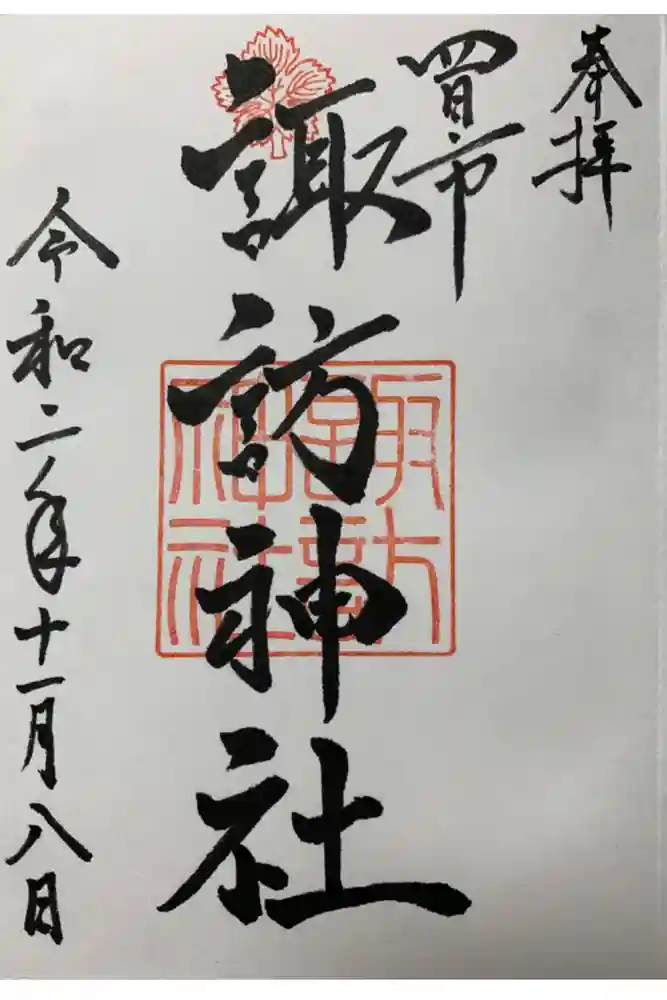 奉拝
四日市
諏訪神社
諏訪
神社
令和二年十一月八日